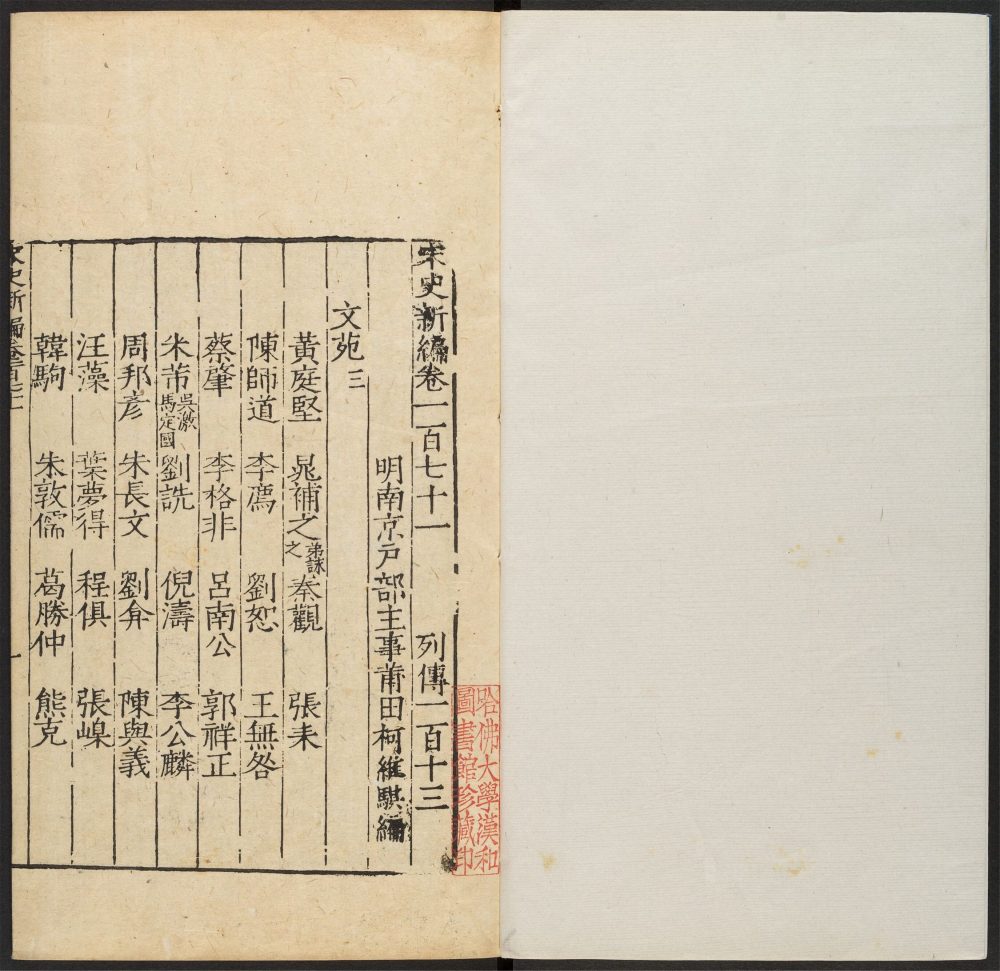 宋史新編卷一百七十一 列傳一百十三
明南京戶部主事莆田柯維騏編
文苑三
黃庭堅 晁補之弟詠之 秦觀 張耒
陳師道 李廌 劉恕 王無咎
蔡肇 李格非 呂南公 郭祥正
米芾吳激馬定國 劉詵 倪濤 李公麟
周邦彥 朱長文 劉弇 陳與義
汪藻 葉夢得 程俱 張嵲
韓駒 朱敦儒 葛勝仲 熊克
宋史新編卷一百七十一 一
哈佛大學漢和
圖書館珍藏印